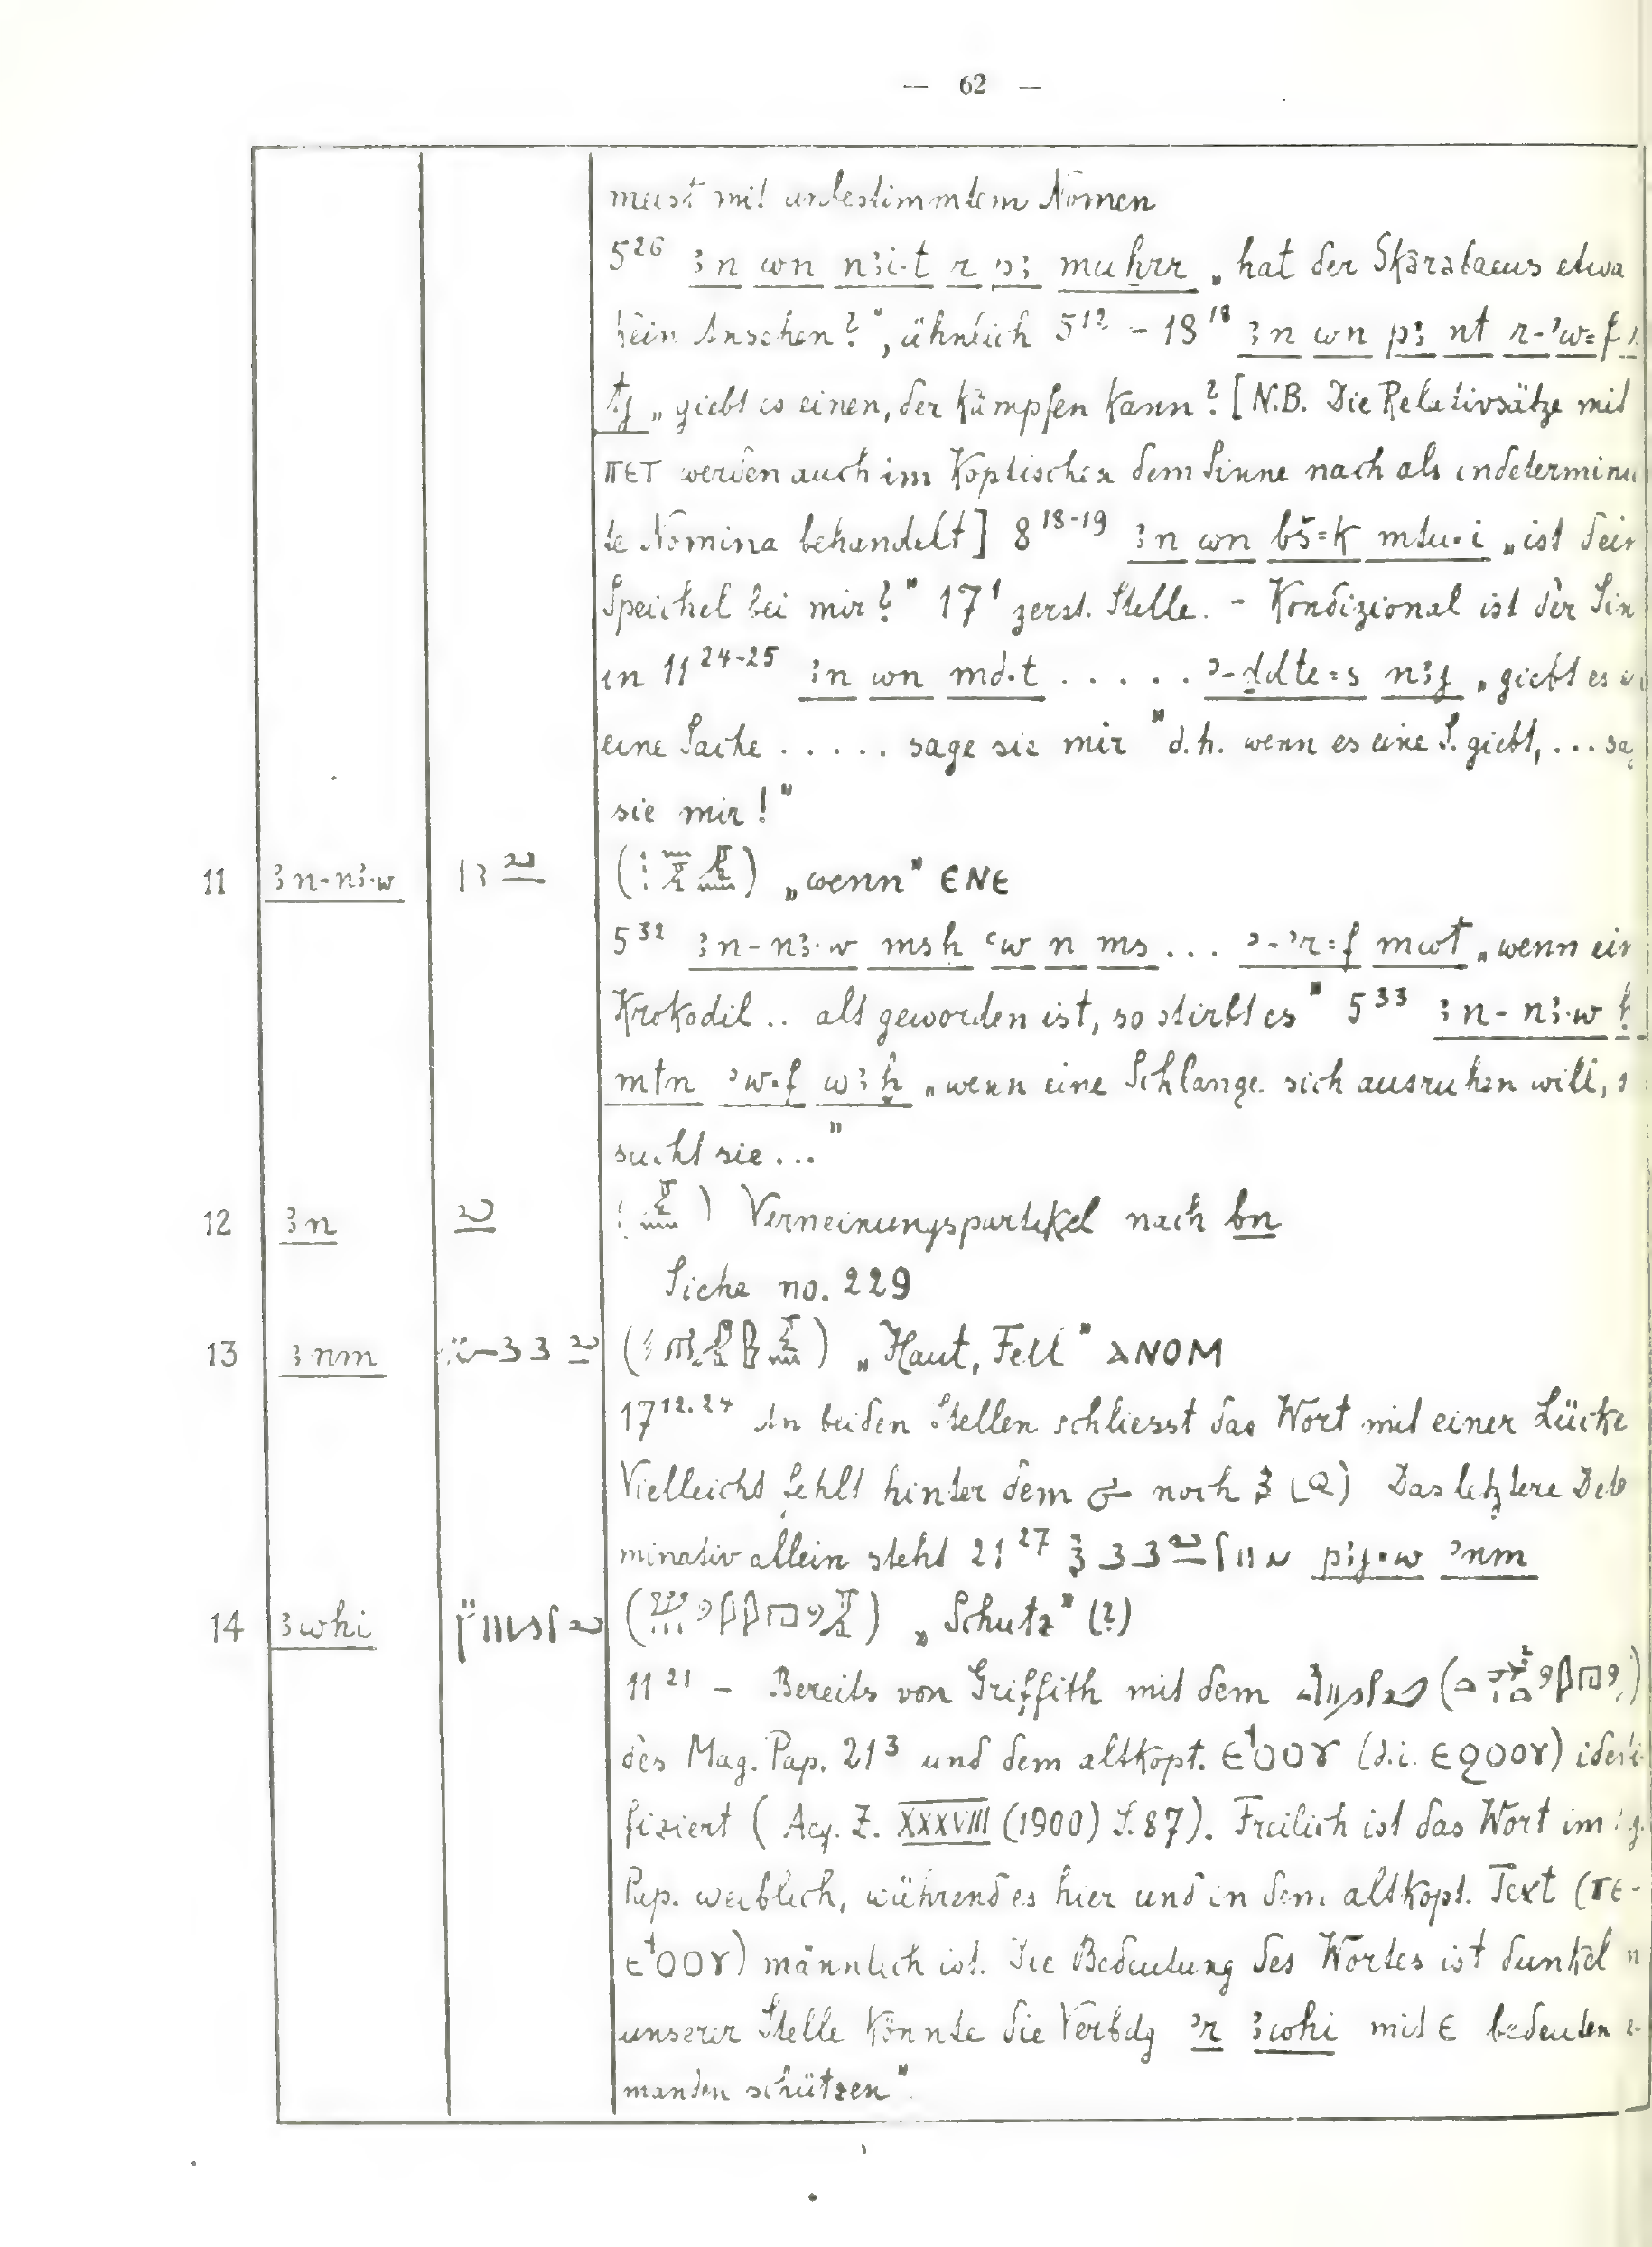 — 62 —
meist mit unbestimmtem Nomen
5²⁶ ꜣn wn nꜣi·t r pꜣ muḥrr „hat der Skarabaeus etwa
kein Ansehen?", ähnlich 5¹² - 18¹⁸ ꜣn wn pꜣ nt r-ʾw=f
„giebt es einen, der kämpfen kann? [N.B. Die Relativsätze mit
ⲡⲉⲧ werden auch im Koptischen dem Sinne nach als indetermin
te Nomina behandelt] 8¹⁸⁻¹⁹ ꜣn wn bš=k mtu·i „ist dein
Speichel bei mir?" 17¹ zerst. Stelle. - Kondizional ist der Sin
in 11²⁴⁻²⁵ ꜣn wn md·t ..... ʾ-ḏdte=s nꜣj „giebt es
eine Sache ..... sage sie mir" d.h. wenn es eine S. giebt, ... sag
sie mir!"
11 ꜣn-nꜣ·w „wenn" ⲉⲛⲉ
5³² ꜣn-nꜣ·w msḥ ꜥw n ms ... ʾ-ʾr=f mwt „wenn ein
Krokodil .. alt geworden ist, so stirbt es" 5³³ ꜣn-nꜣ·w
mtn ʾw·f wꜣḫ „wenn eine Schlange sich ausruhen will, s
sucht sie ..."
12 ꜣn Verneinungspartikel nach bn
Siehe no. 229
13 ꜣnm „Haut, Fell" ⲁⲛⲟⲙ
17¹²·²⁴ An beiden Stellen schliesst das Wort mit einer Lücke
Vielleicht fehlt hinter dem noch Das letztere Dete
minativ allein steht 21²⁷ pꜣj·w ʾnm
14 ꜣwhi „Schutz" (?)
11²¹ - Bereits von Griffith mit dem
des Mag. Pap. 21³ und dem altkopt. (d.i. ⲉϩⲟⲟⲩ) identi
fiziert (Aeg. Z. XXXVIII (1900) S. 87). Freilich ist das Wort im
Pap. weiblich, während es hier und in dem altkopt. Text (ⲡⲉ-
männlich ist. Die Bedeutung des Wortes ist dunkel
unserer Stelle könnte die Verbdg ʾr ꜣwhi mit ⲉ bedeuten
manden schützen".